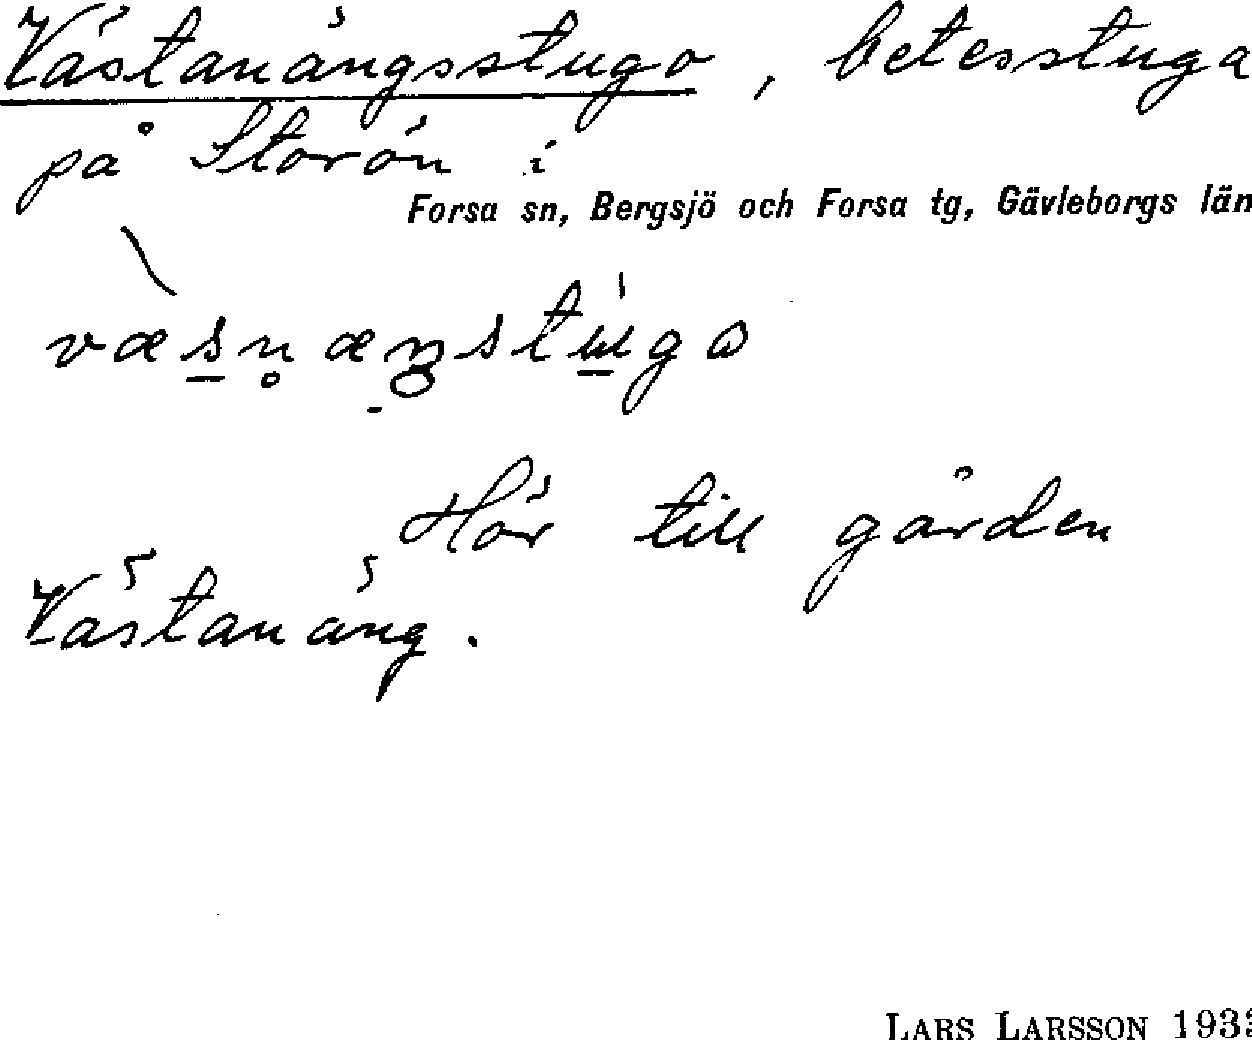 Västanängsstugo, betesstuga
på Storön i
Forsa sn, Bergsjö och Forsa tg, Gävleborgs län
Hör till gården
Västanäng.
LARS LARSSON